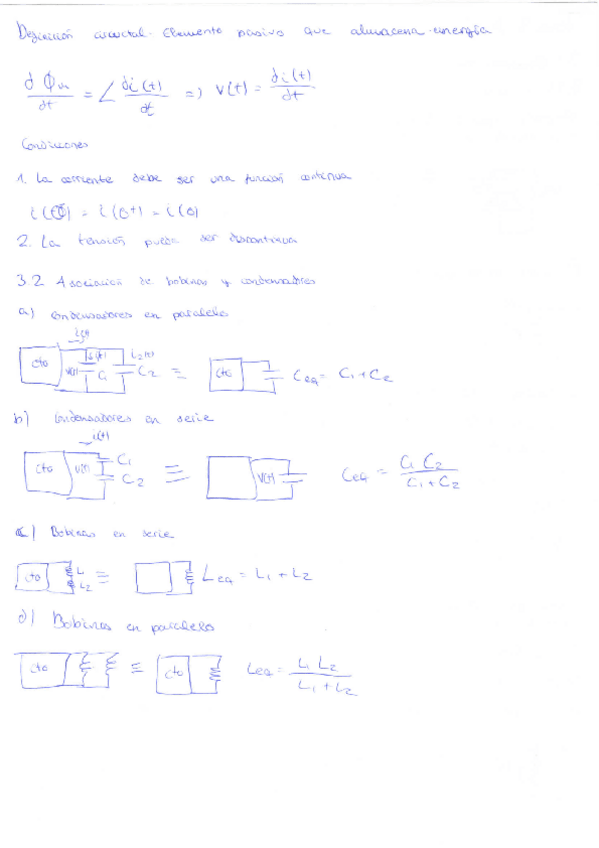 Definición circuital. Elemento pasivo que almacena energía
dΦm/dt = L di(t)/dt => v(t) = di(t)/dt
Condiciones
1. La corriente debe ser una función continua
i(0) = i(0+) = i(0)
2. La tensión puede ser discontinua
3.2 Asociación de bobinas y condensadores
a) Condensadores en paralelo
i(t)
cto v(t) i1(t) C1 i2(t) C2 ≡ cto Ceq = C1 + C2
b) Condensadores en serie
i(t)
cto v(t) C1 C2 ≡ v(t) Ceq = C1 C2 / C1 + C2
c) Bobinas en serie
cto L L2 ≡ Leq = L1 + L2
d) Bobinas en paralelo
cto ≡ cto Leq = L1 L2 / L1 + L2